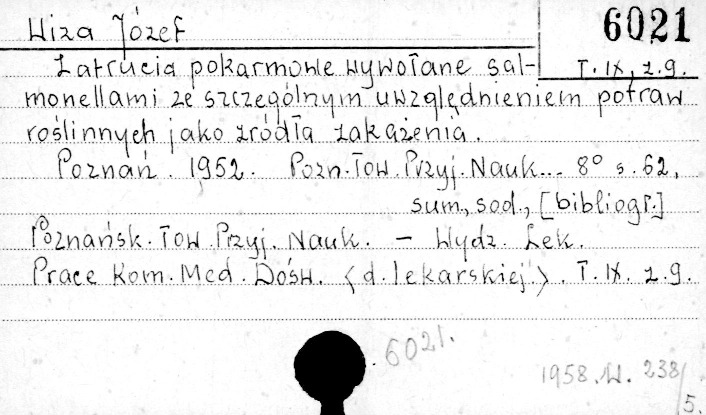 Wiza Józef
6021
Zatrucia pokarmowe wywołane sal-
T. IX, z. 9.
monellami ze szczególnym uwzględnieniem potraw
roślinnych jako źródła zakażenia.
Poznań. 1952. Pozn. Tow. Przyj. Nauk... 8° s. 62,
sum., sod., [bibliogr.]
Poznańsk. Tow. Przyj. Nauk. – Wydz. Lek.
Prace Kom. Med. Dośw. <d. lekarskiej>. T. IX. z. 9.
6021.
1958. W. 238/5.